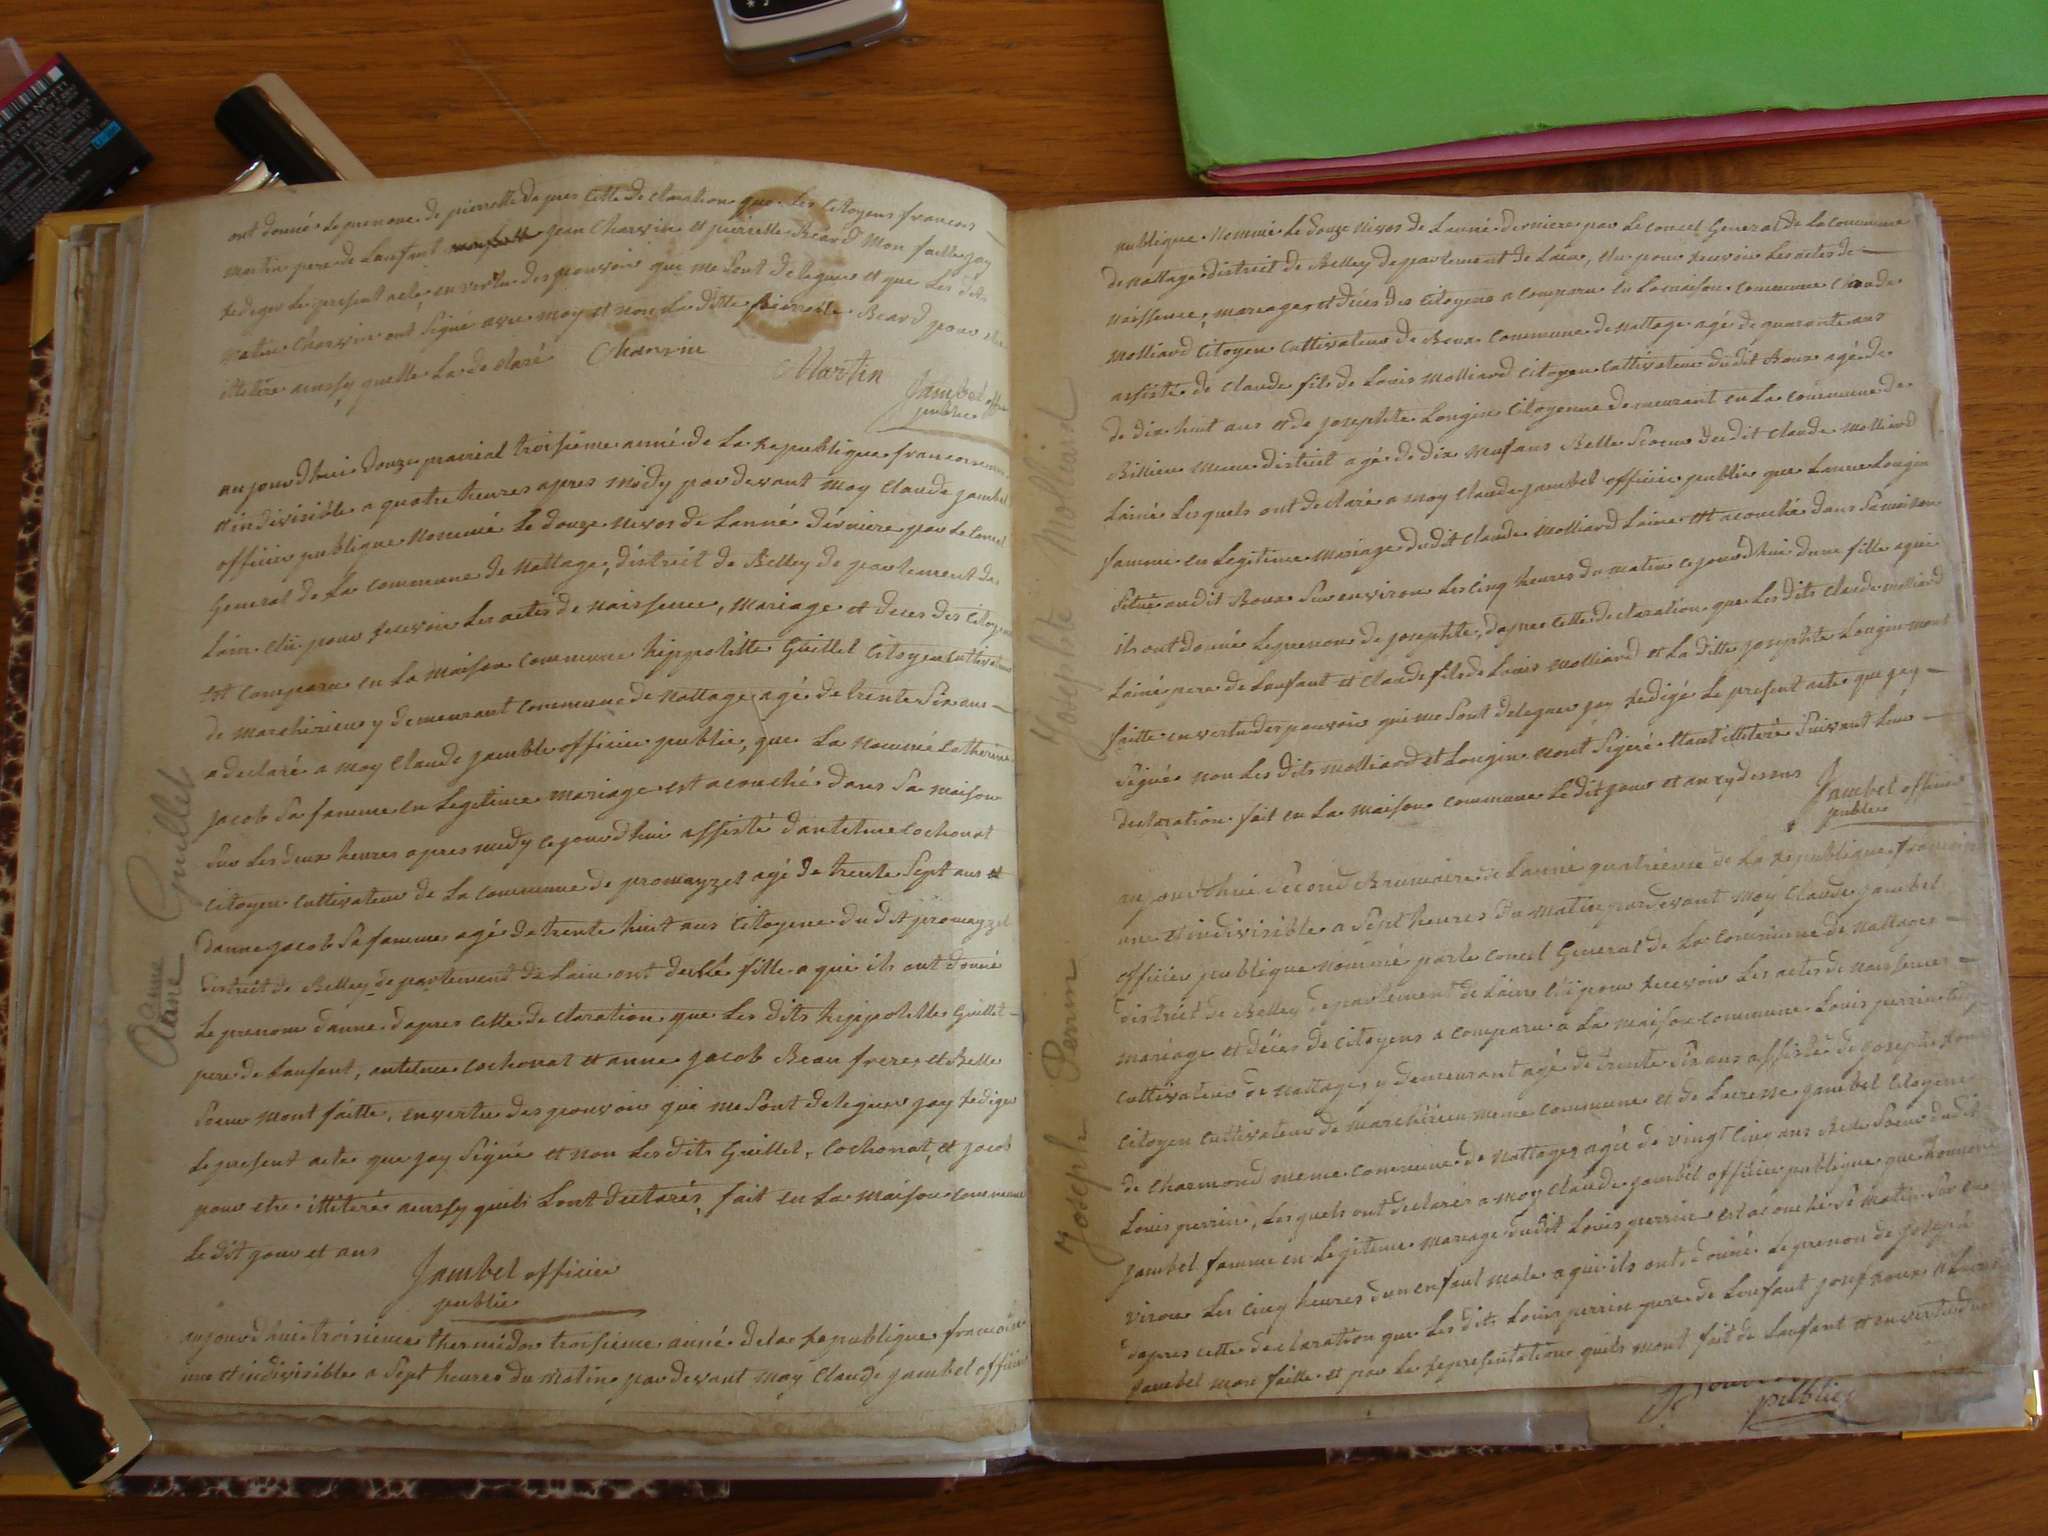 ont donné le prenom de pierrette dapres cette declaration que les citoyens francois
martin pere de lanfant jean Charvin et pierrette Béard mon faitte jay
redigé le present acte en vertu des pouvoir que me sont delegués et que les dits
martin Charvin ont signé avec moy et non la ditte pierrette Beard pour etre
illitéré aussy quelle la declaré Charvin
Martin
Jambel officier
public
aujourdhui douze prairial troisième anné de la republique francoise une
et indivisible a quatre heures apres midy par devant moy Claude jambel
officier publique nommé le douze nivos de lanné dérniere par le conseil
General de la commune de nattage, district de Belley departement de
Lain élu pour recevoir les actes de naissence, mariage et deces des citoyens
est comparu en la maison commune hippolitte Guillet citoyen cultivateur
de marchirieu y demeurant commune de nattage agé de trente six ans
a declaré a moy Claude jamble officier public, que la nommé catherine
jacob sa famme en legitime mariage est acouché dans sa maison
sur les deux heures apres midy cejourdhui assisté dantelme cochonat
citoyen cultivateur de la commune de promayzel agé de trente sept ans et
danne jacob sa famme agé de trente huit ans citoyene du dit promayzel
district de Belley departement de Lain ont fille a qui ils ont donné
le prenom danne dapres cette declaration que les dits hippolitte Guillet
pere de lanfant, antelme cochonat et anne jacob Beau frere et Belle
soeur mont faitte, en vertu des pouvoir qui me sont delegués jay redigé
le present acte que jay signé et non les dits Guillet, cochonat, et jacob
pour etre illitéré aussy quils lont declarés, fait en la maison commune
le dit jour et ans
Jambel officier
public
aujourdhui troisieme thermidor troisieme anné de la republique francoise
une et indivisible a sept heures du matin par devant moy Claude jambel officier
Anne
Anne Guillet
publique nommé le douze nivos de lanné derniere par le conseil General de la commune
de nattage district de Belley departement de Lain, élu pour recevoir les actes de
naissence, mariages et déces des citoyens a comparu en la maison commune Claude
molliard citoyen cultivateur de Boux commune de nattage agé de quarante ans
assisté de Claude fils de Louis molliard citoyen cultivateur dudit Boux agé de
de dix huit ans et de josephte Longin citoyenne demeurant en la commune de
Billieu meme district agé de dix neuf ans Belle soeur du dit Claude molliard
Lainé lesquels ont declaré a moy Claude jambel officier public que Lanne Longin
famme en legitime mariage du dit Claude molliard Lainé est acouché dans sa maison
situé audit Boux sur environ les cinq heures du matin cejourdhui dune fille a qui
ils ont donné le prenom de josephte, dapres cette declaration que les dits Claude molliard
Lainé pere de lanfant et Claude fils de Louis molliard et la ditte josephte Longin mont
faitte en vertu des pouvoir qui me sont delegués jay redigé le present acte que jay
signé non les dits molliard et Longin nont signé etant illitéré suivant leur
declaration fait en la maison commune le dit jour et an cy dessus
Jambel officier
public
aujourdhui second Brumaire de lanné quatrieme de la republique francoise
une et indivisible a sept heures du matin par devant moy Claude jambel
officier publique nommé par le conseil General de la commune de nattages
district de Belley departement de Lain élu pour recevoir les actes de naissences
mariage et déces de citoyens a comparu a la maison commune Louis perrin
cultivateur de nattages y demeurant agé de trente six ans assisté de joseph
citoyen cultivateur de marchirieu meme commune et de Lucresse jambel citoyene
de charmond meme commune de nattages agée de vingt cinq ans Belle soeur dudit
Louis perrin, lesquels ont declarés a moy Claude jambel officier publique que
jambel famme en legitime mariage dudit Louis perrin est acouché ce matin sur en
viron les cinq heures dun enfant male a qui ils ont donné le prenom de joseph
dapres cette declaration que les dits Louis perrin pere de lanfant
jambel mon faitte et par la representation quils mont fait de lanfant et en vertu des
Josephte Molliard
Joseph Perrin
public